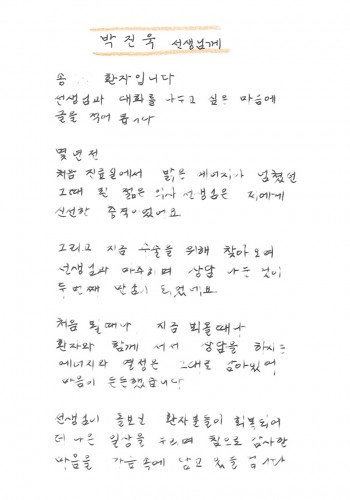 박진욱 선생님께
송 환자입니다
선생님과 대화를 나누고 싶은 마음에
글을 적어 봅니다
몇년전
처음 진료실에서 밝은 에너지가 넘쳤던
그때 뵌 젊은 의사 선생님은 저에게
신선한 충격이었어요
그리고 지금 수술을 위해 찾아오며
선생님과 마주하며 상담 나눈 것이
두번째 만남이 되었네요
처음 뵐때나 지금 뵈올때나
환자와 함께 서서 상담을 하시는
에너지와 열정은 그대로 남아있어
마음이 든든했습니다
선생님이 돌보신 환자분들이 회복되어
더 나은 일상을 누리며 참으로 감사한
마음을 가슴속에 담고 있을